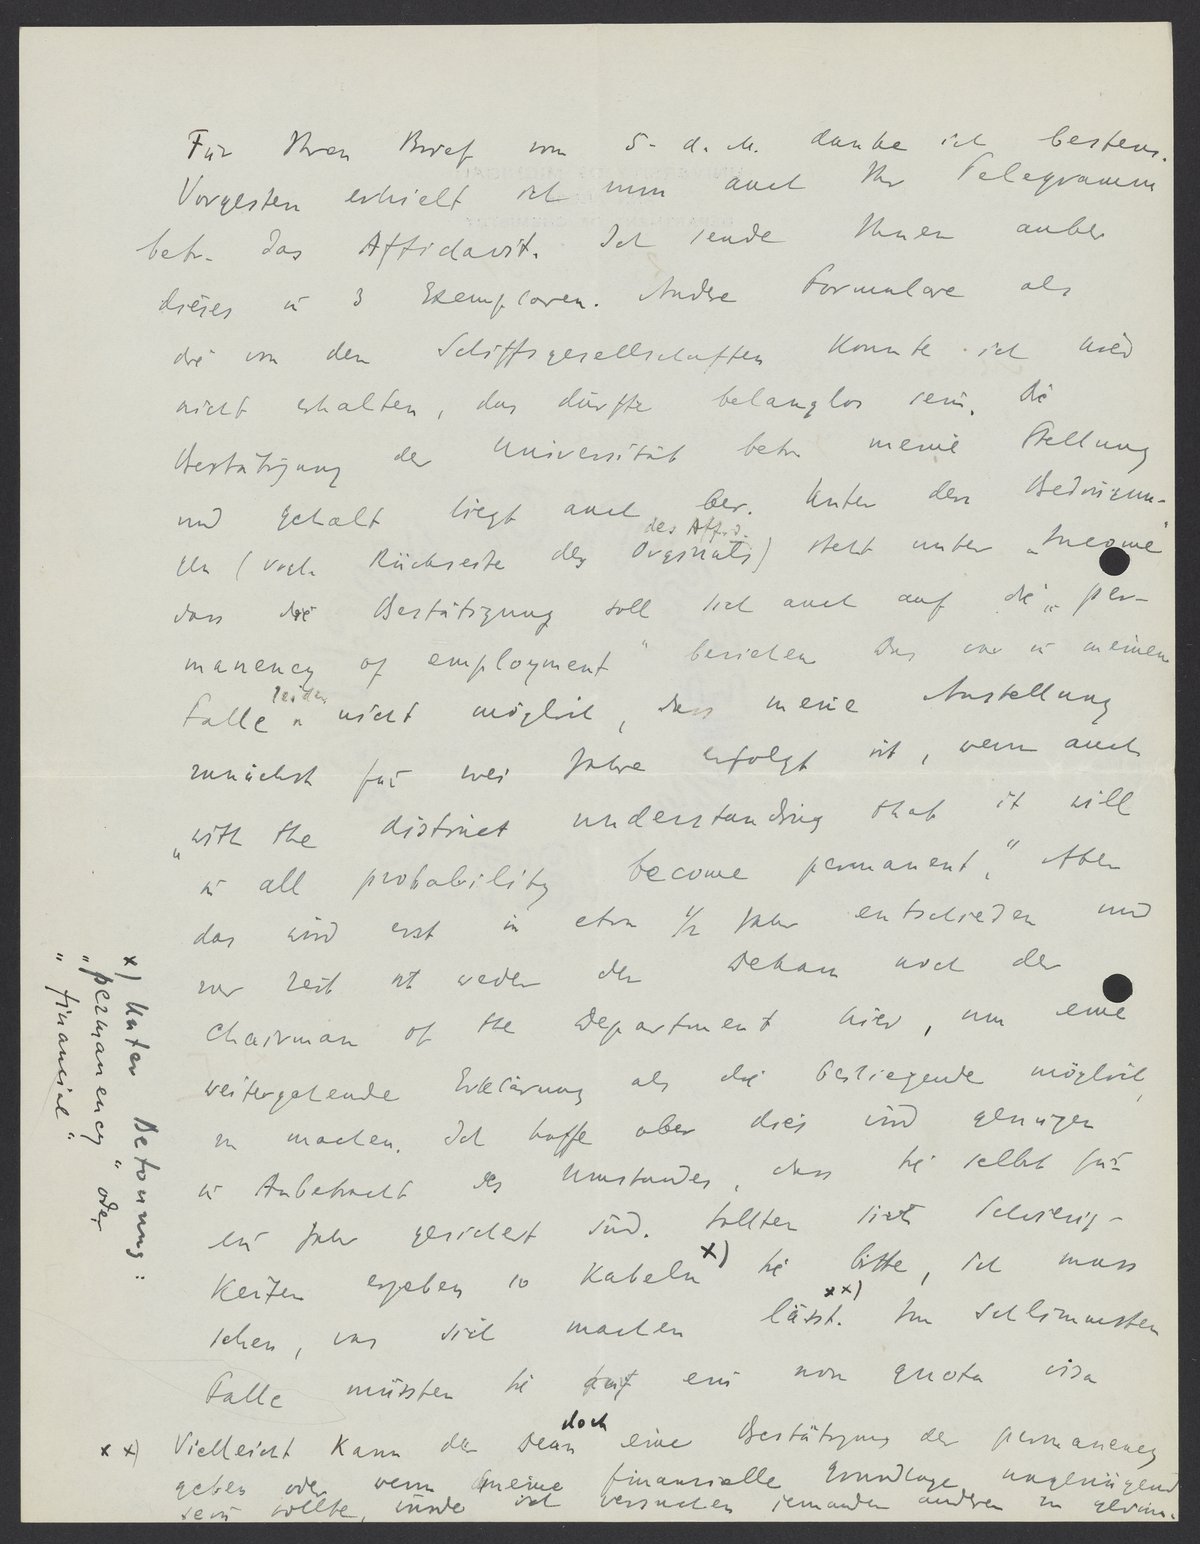 Für Ihren Brief vom 5. d. M. danke ich bestens.
Vorgestern erhielt ich nun auch Ihr Telegramm
betr. das Affidavit. Ich sende Ihnen anbei
dieses in 3 Exemplaren. Andere Formulare als
die von den Schiffsgesellschaften konnte ich hier
nicht erhalten, das dürfte belanglos sein. Die
Bestätigung der Universität betr. meine Stellung
und Gehalt liegt auch bei. Unter den Bedingun-
gen (vergl. Rückseite des Originals des Affid.) steht unter „Income"
dass die Bestätigung soll sich auch auf die „per-
manency of employment" beziehen. Das war in meinem
Falle leider nicht möglich, dass meine Anstellung
zunächst für zwei Jahre erfolgt ist, wenn auch
„with the distinct understanding that it will
in all probability become permanent." Aber
das wird erst in etwa 1/2 Jahr entschieden und
zur Zeit ist weder der Dekan noch der
Chairman of the Department hier, um eine
weitergehende Erklärung als die beiliegende möglich
zu machen. Ich hoffe aber dies wird genügen
in Anbetracht des Umstandes, dass Sie selbst für
ein Jahr gesichert sind. Sollten sich Schwierig-
keiten ergeben so kabeln x) Sie bitte, ich muss
sehen, was sich machen lässt. xx) Im schlimmsten
Falle müssten Sie auf ein non quota visa
xx) Vielleicht kann der Dean doch eine Bestätigung der permanency
geben oder wenn meine finanzielle Grundlage ungenügend
sein sollte, würde ich versuchen jemanden anderen zu gewin-
x) Unter Betonung:
„permanency" oder
„financial"